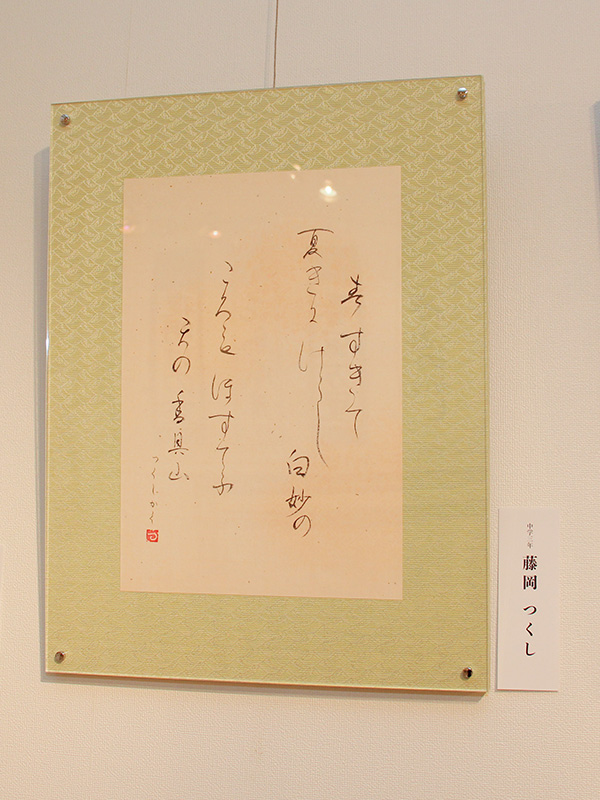 春すきて
夏きにけらし 白妙の
ころもほすてふ
天の香具山
つくしかく
藤岡 つくし